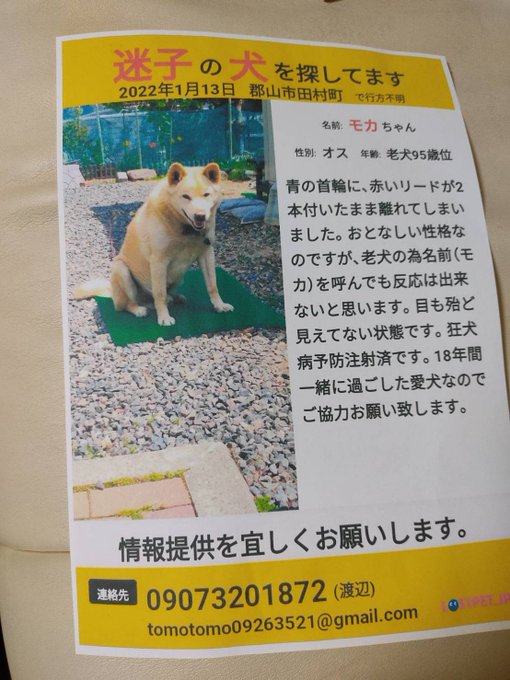 迷子の犬を探してます
2022年1月13日 郡山市田村町 で行方不明
名前: モカちゃん
性別: オス 年齢: 老犬95歳位
青の首輪に、赤いリードが2
本付いたまま離れてしまい
ました。おとなしい性格な
のですが、老犬の為名前(モ
カ)を呼んでも反応は出来
ないと思います。目も殆ど
見えてない状態です。狂犬
病予防注射済です。18年間
一緒に過ごした愛犬なので
ご協力お願い致します。
情報提供を宜しくお願いします。
連絡先 09073201872 (渡辺)
tomotomo09263521@gmail.com